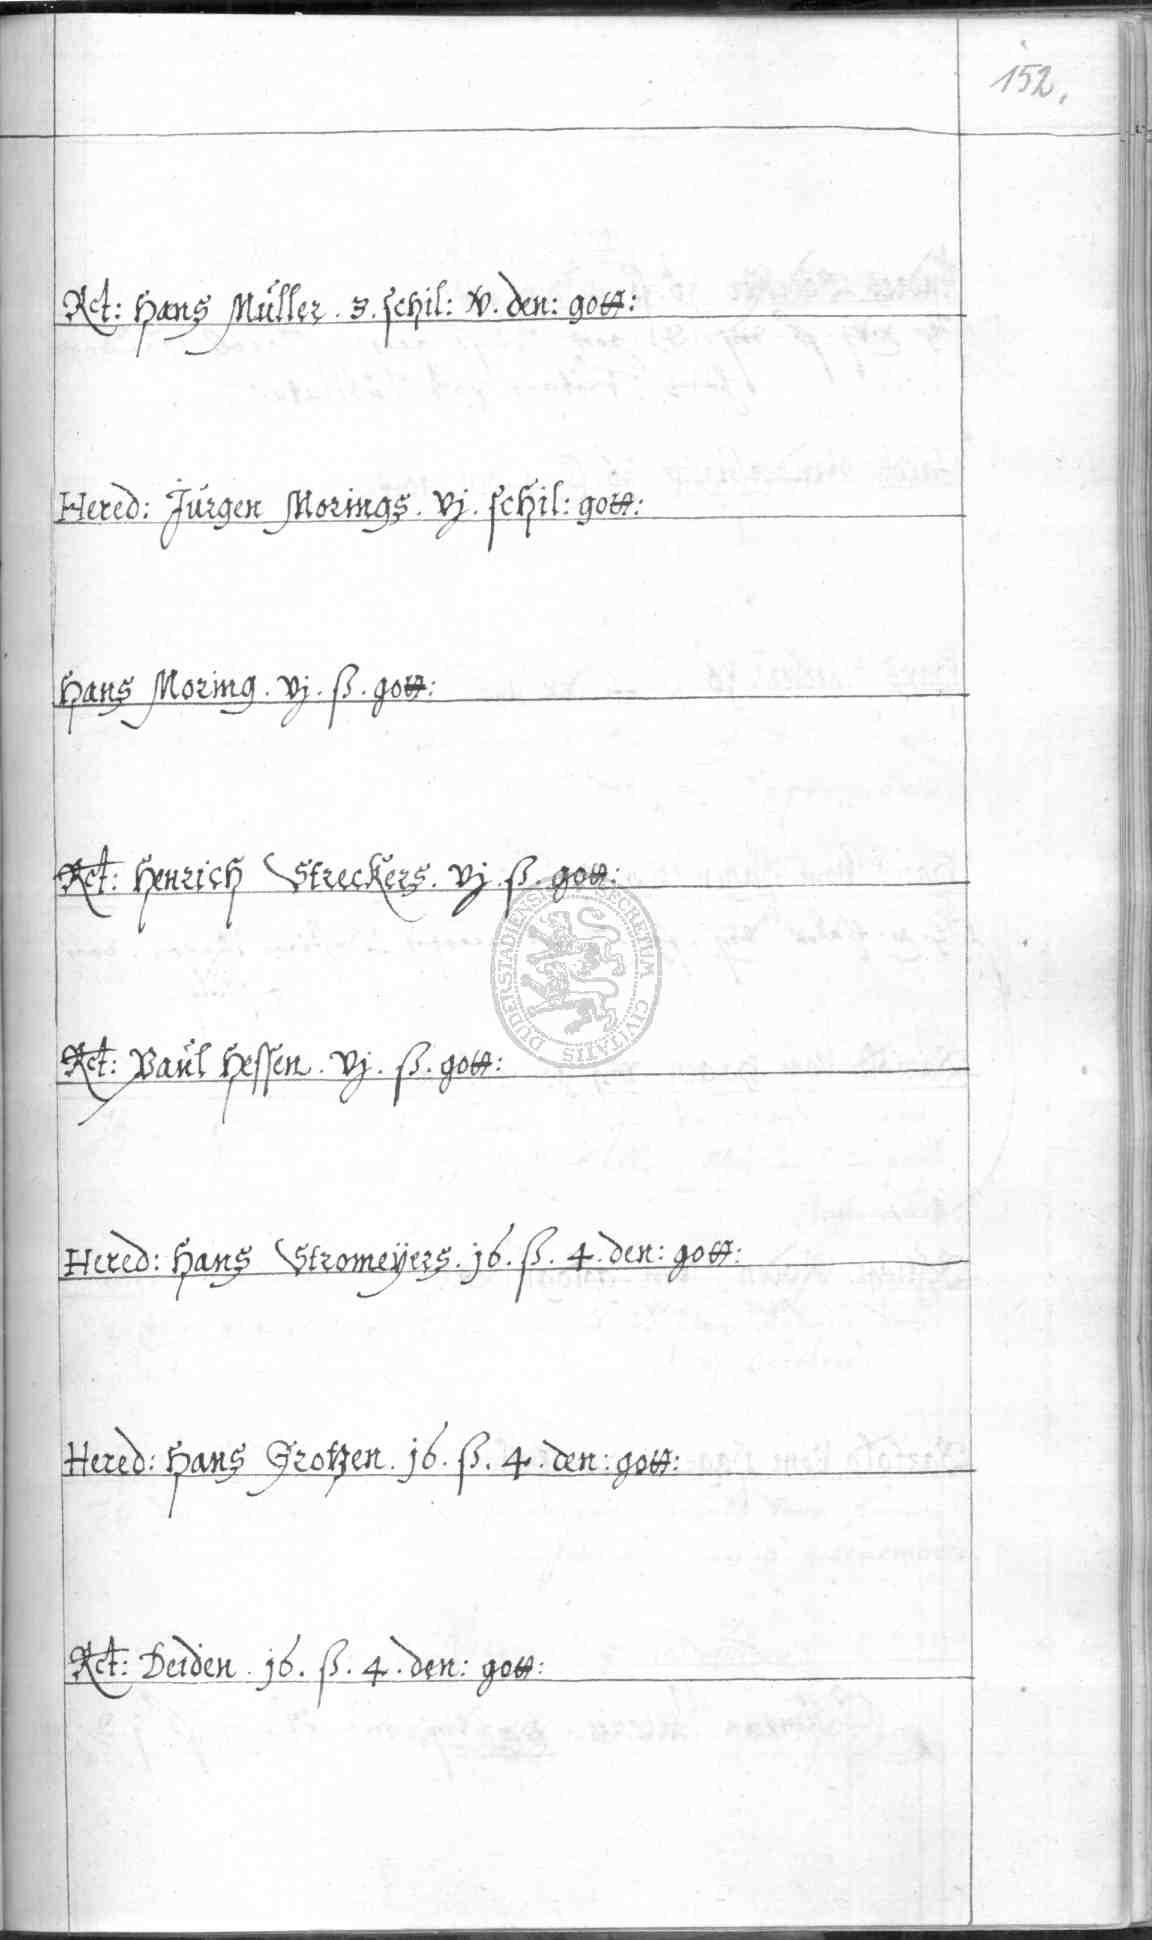 152.
Rct: Hans Müller. 3. schil: v. den: gott:
Hered: Jürgen Morings. vj. schil: gott:
Hans Moring. vj. ß. gott:
Rct: Henrich Streckers. vj. ß. gott:
SECRETUM CIVITATIS DUDERSTADIENSIS
Rct: Paul Hessen. vj. ß. gott:
Hered: Hans Stromeÿers. j6. ß. 4. den: gott:
Hered: Hans Grotzen. j6. ß. 4. den: gott:
Rct: Deiden. j6. ß. 4. den: gott: